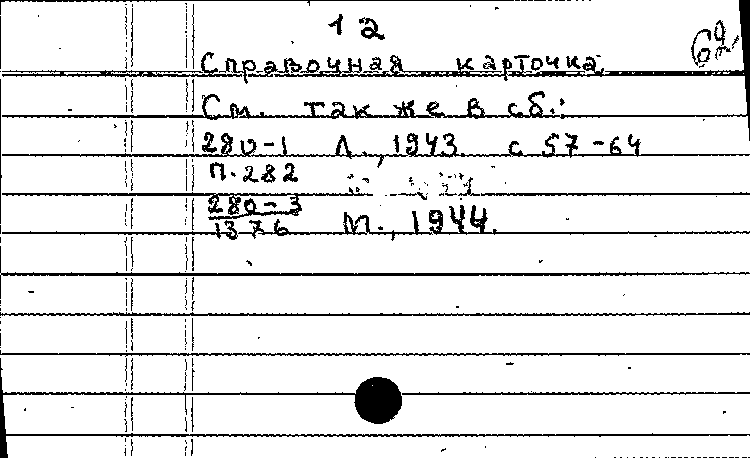 12
62
Справочная карточка.
См. так же в сб.:
280-1 Л., 1943. с 57-64
П. 282
280-3
1376 М., 1944.